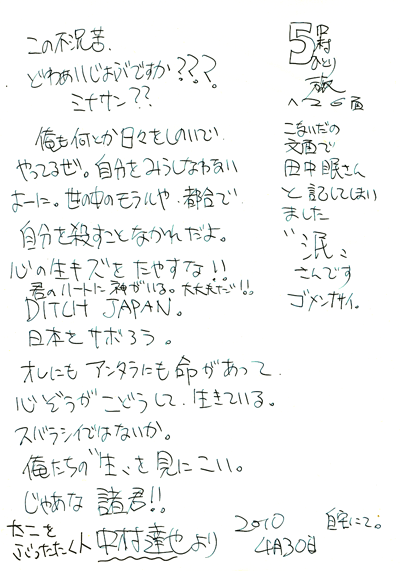 この不況苦、
どわぁいじょぶですか???
ミナサン??
俺も何とか日々をしのいで
やってるぜ。自分をみうしなわない
よーに。世の中のモラルや、都合で
自分を殺すことなかれだよ。
心の生キズをたやすな!!
君のハートに神がいる。大丈夫だ!!
DITCH JAPAN。
日本をサボろう。
オレにもアンタラにも命があって
心ぞうがこどうして、生きている。
スバラシイではないか。
俺たちの"生、を見にこい。
じゃあな 諸君!!
たこを
ぶったたく人 中村達也より
2010
4月30日
自宅にて。
5
中村
ひとり
旅
へ
こないだの
文面で
田中眠さん
と記してしまい
ました
"泯、
さんです
ゴメンナサイ。